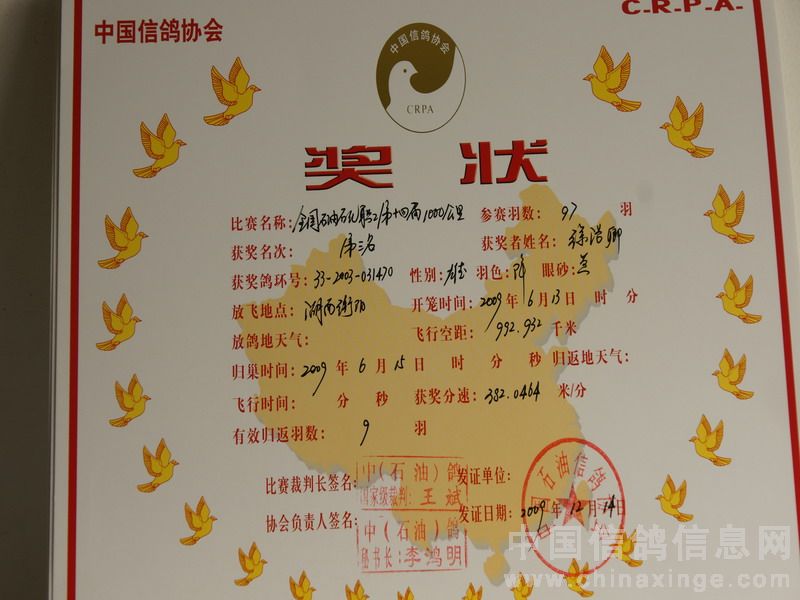 C-R-P-A-
中国信鸽协会
中国信鸽协会
CRPA
奖 状
比赛名称：全国石油石化职工第十四届1000公里 参赛羽数：97 羽
获奖名次：第三名 获奖者姓名：徐浩卿
获奖鸽环号：33-2003-031470 性别：雄 羽色：雨 眼砂：黄
放飞地点：湖南衡阳 开笼时间：2009年6月13日 时 分
放鸽地天气： 飞行空距：992.932 千米
归巢时间：2009 年 6 月 15 日 时 分 秒 归返地天气：
飞行时间： 分 秒 获奖分速：382.0464 米/分
有效归返羽数：9 羽
比赛裁判长签名：中（石油）鸽 发证单位：
国家级裁判：王斌
协会负责人签名：中（石油）鸽 发证日期：2009年12月14日
秘书长：李鸿明
石油信鸽
中国信鸽信息网
www.chinaxinge.com